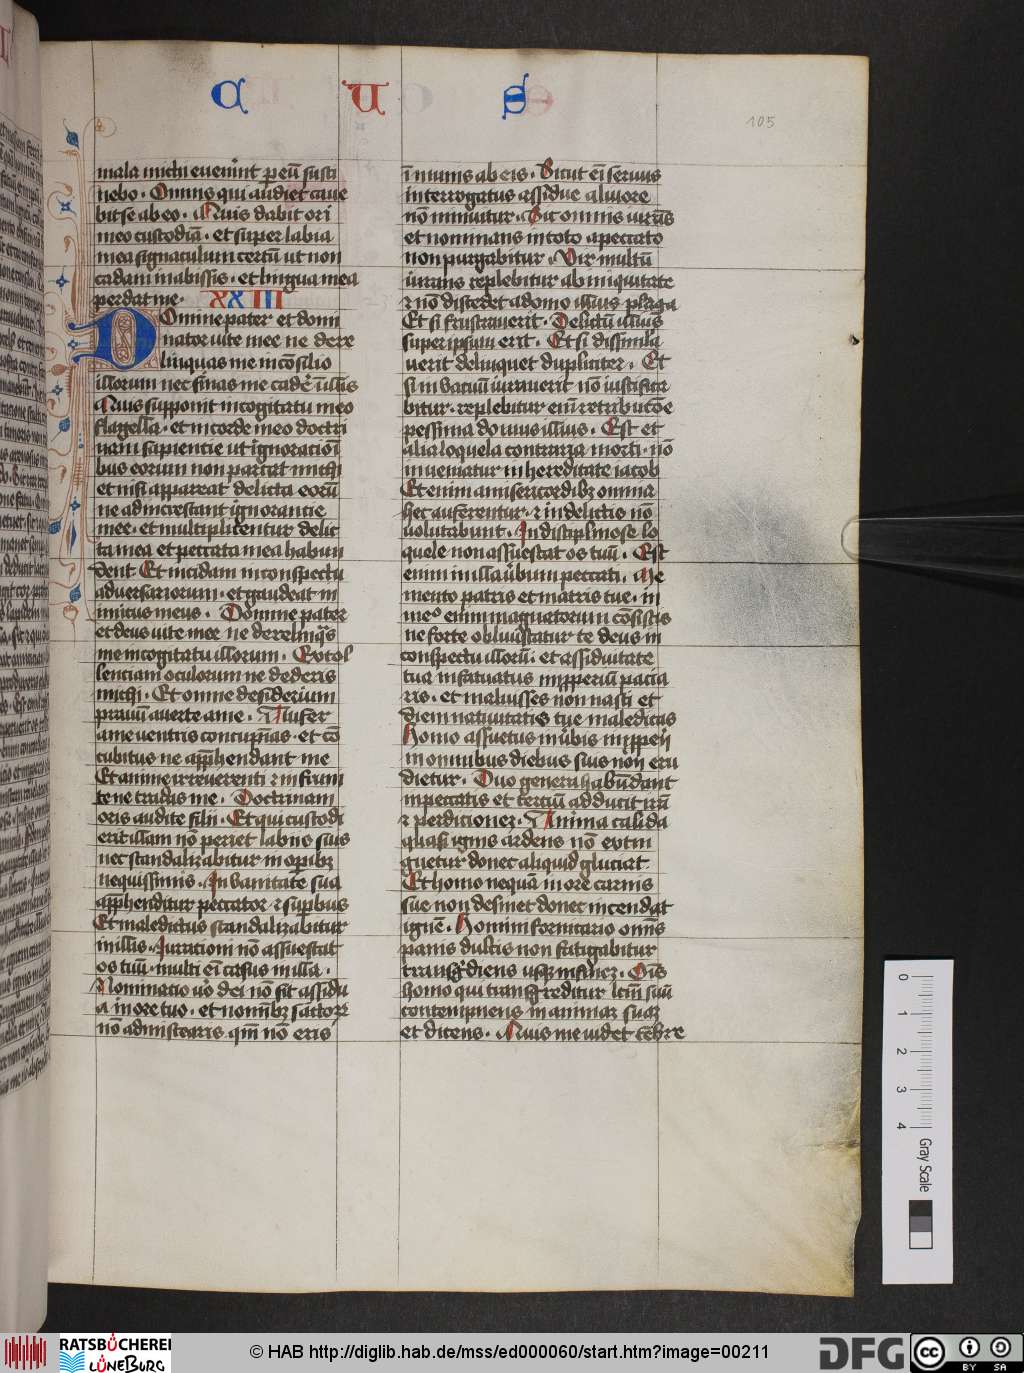 C U S
105
mala michi evenir̄t p eū susti
nebo . Omnis qui audiet cave
bit se ab eo . Quis dabit ori
meo custodiā . et super labia
mea signaculum certū ut non
cadam in abissis . et lingua mea
perdat me . XXIII
Domine pater et domi
nator vite mee ne dere
linquas me in cōsilio
illorum nec sinas me cadē i illis
Quis supponit in cogitatu meo
flagella . et in corde meo doctri
nam sapientie ut ignoratioī
bus eorum non parcat michi
et nisi appareat delicta eorū
ne adincrescant ignorantie
mee . et multiplicentur delic
ta mea et peccata mea habun
dent . Et incidam in conspectu
adversariorum . et gaudeat in
imicus meus . Domine pater
et deus vite mee ne derelinqs
me in cogitatu illorum . Extol
lenciam oculorum ne dederis
michi . Et omne desiderium
pravū averte a me . Aufer
a me ventris concupnas . et cō
cubitus ne apphendant me
Et anime irreverenti et infruni
tene tradas me . Doctrinam
oris audite filii . Et qui custodi
erit illam nō periet labiis suis
nec scandalizabitur in opibz
nequissimis . In vanitate sua
apphenditur peccator et supbus
Et maledictus scandalizabitur
in illis . Iurationi nō assuescat
os tuū . multi eī casus in illa .
Nominatio vo dei nō sit assidu
a in ore tuo . et nomībz sāctorz
nō admiscearis . qm nō eris
īmunis ab eis . Sicut eī servus
interrogatus assidue a livore
nō minuitur . Sic omnis iurās
et nominans in toto a peccato
non purgabitur . Vir multū
iurans replebitur ab iniquitate
et nō discedet a domo illius plaga
Et si frustraverit . Delictū illius
super ipsum erit . Et si dissimila
verit delinquet dupliciter . Et
si in vacuū iuraverit nō iustifica
bitur . replebitur enī retributōe
pessima domus illius . Est et
alia loquela contraria morti . nō
inveniatur in hereditate iacob
Et enim a misericordibz omnia
hec auferentur . et in delictis nō
volutabunt . Indisciplinose lo
quele non assuescat os tuū . Est
enim in illa vbum peccati . Me
mento patris et matris tue . in
meo enim magnatorum cōsistis
ne forte obliviscatur te deus in
conspectu illorū . et assiduitate
tua infatuatus impperium pacia
ris . et maluisses non nasci et
diem nativitatis tue maledicas
Homo assuetus in vbis impperii
in omnibus diebus suis non eru
dietur . Duo genera habūdant
in peccatis et tertiū adducit irā
et perdicionez . Anima calida
quasi ignis ardens nō extin
guetur donec aliquid gluciat
Et homo nequā in ore carnis
sue non desinet donec incendat
ignē . Homini fornicario omīs
panis dulcis non fatigabitur
transgdiens usqz in finez . Omīs
homo qui transgreditur lctm suū
contempnens in animaz suaz
et dicens . Quis me videt tenebre
0
1
2
3
4
Gray Scale
RATSBÜCHEREI
LÜNEBURG
© HAB http://diglib.hab.de/mss/ed000060/start.htm?image=00211
DFG
cc
BY SA